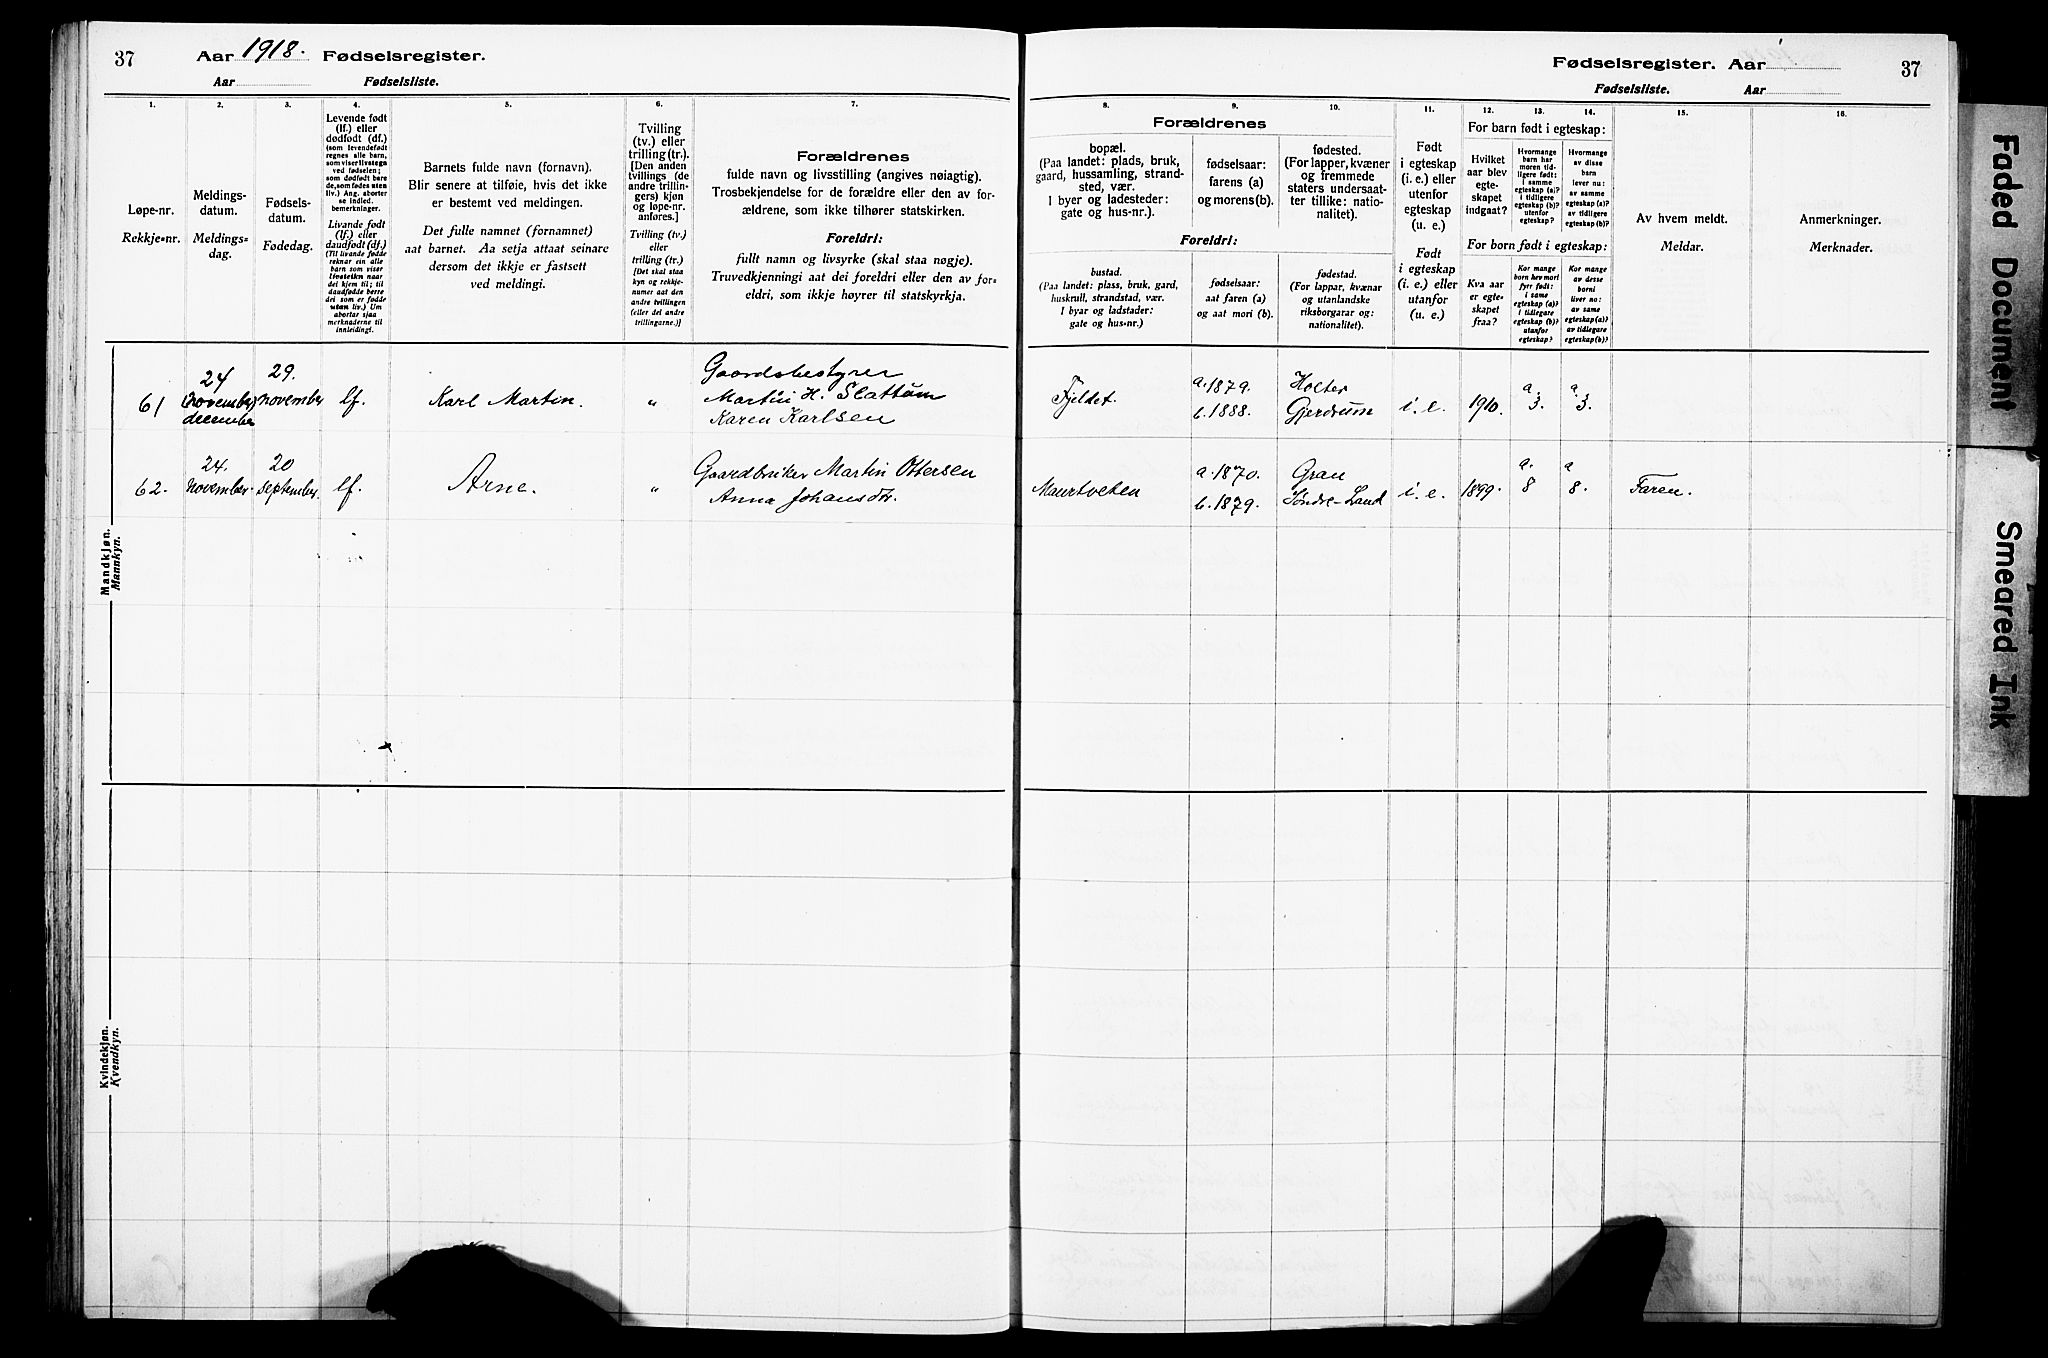 37
Aar 1918. Fødselsregister.
Aar Fødselsliste.
1.
2.
3.
4.
5.
6.
7.
Løpe-nr.
Rekkje=nr.
Meldings-
datum.
Meldings=
dag.
Fødsels-
datum.
Fødedag.
Levende født
(lf.) eller
dødfødt (df.)
(som levendefødt
regnes alle barn,
som viser livstegn
ved fødselen;
som dødfødt bare
de, som fødes uten
liv.) Ang. aborter
se indled.
bemerkninger.
Livande født
(lf.) eller
daudfødt (df.)
(Til livande fødde
reknar ein alle
born som viser
livsteikn naar
dei kjem til; til
daudfødde berre
dei som er fødde
utan liv.) Um
abortar sjaa
merknaderne til
innleidingi.
Barnets fulde navn (fornavn).
Blir senere at tilføie, hvis det ikke
er bestemt ved meldingen.
Det fulle namnet (fornamnet)
aat barnet. Aa setja attaat seinare
dersom det ikkje er fastsett
ved meldingi.
Tvilling
(tv.) eller
trilling (tr.).
[Den anden
tvillings (de
andre trillin-
gers) kjøn
og løpe-nr.
anføres.]
Tvilling (tv.)
eller
trilling (tr.)
[Det skal staa
kyn og rekkje-
numer aat den
andre tvillingen
(eller dei andre
trillingarne.)]
Forældrenes
fulde navn og livsstilling (angives nøiagtig).
Trosbekjendelse for de forældre eller den av for-
ældrene, som ikke tilhører statskirken.
Foreldri:
fullt namn og livsyrke (skal staa nøgje).
Truvedkjenningi aat dei foreldri eller den av for=
eldri, som ikkje høyrer til statskyrkja.
Mandkjøn.
Mannkyn.
61
24
(november)
december
29.
november
lf.
Karl Martin.
"
Gaardsbestyrer
Martin H. Slattum
Karen Karlsen
62.
24.
november.
20
september.
lf.
Arne.
"
Gaardbruker Martin Ottersen
Anna Johansdtr.
Kvindekjøn.
Kvendkyn.
Fødselsregister. Aar
37
Fødselsliste. Aar
8.
9.
10.
11.
12.
13.
14.
15.
16.
Forældrenes
bopæl.
(Paa landet: plads, bruk,
gaard, hussamling, strand-
sted, vær.
I byer og ladesteder:
gate og hus-nr.).
fødselsaar:
farens (a)
og morens (b).
fødested.
(For lapper, kvæner
og fremmede
staters undersaat-
ter tillike: natio-
nalitet).
Foreldri:
bustad.
(Paa landet: plass, bruk, gard,
huskrull, strandstad, vær.
I byar og ladstader:
gate og hus-nr.)
fødselsaar:
aat faren (a)
og aat mori (b).
fødestad.
(For lappar, kvænar
og utanlandske
riksborgarar og:
nationalitet).
Født
i egteskap
(i. e.) eller
utenfor
egteskap
(u. e.)
Født
i egteskap
(i. e.) eller
utanfor
(u. e.)
For barn født i egteskap:
Hvilket
aar blev
egte-
skapet
indgaat?
Hvormange
barn har
moren tid-
ligere født:
i samme
egteskap (a)?
i tidligere
egteskap (b)?
utenfor
egteskap?
Hvormange
av disse
barn
lever nu:
av samme
egteskap (a)?
av tidligere
egteskap (b)?
For born født i egteskap:
Kva aar
er egte-
skapet
fraa?
Kor mange
born hev mori
fyrr født:
i same
egteskap (a)?
i tidlegare
egteskap (b)?
utanfor
egteskap?
Kor mange
av desse
borni
liver no:
av same
egteskap (a)?
av tidlegare
egteskap (b)?
Av hvem meldt.
Meldar.
Anmerkninger.
Merknader.
Fjeldet.
a. 1879.
b. 1888.
Holter
Gjerdrum
i. e.
1910.
a.
3.
a.
3.
Maurtveten
a. 1870.
b. 1879.
Gran
Søndre-Land
i. e.
1899.
a.
8
a
8.
Faren.
Faded Document
Smeared Ink